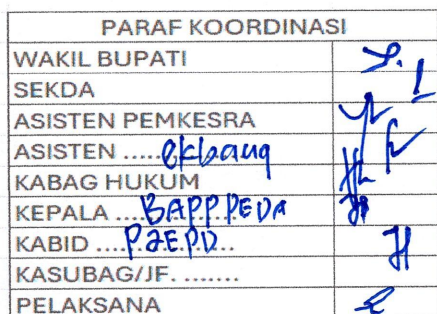 PARAF KOORDINASI
WAKIL BUPATI
SEKDA
ASISTEN PEMKESRA
ASISTEN ..... ekbang
KABAG HUKUM
KEPALA .... BAPPPEDA
KABID .... P2EPD .....
KASUBAG/JF. .......
PELAKSANA